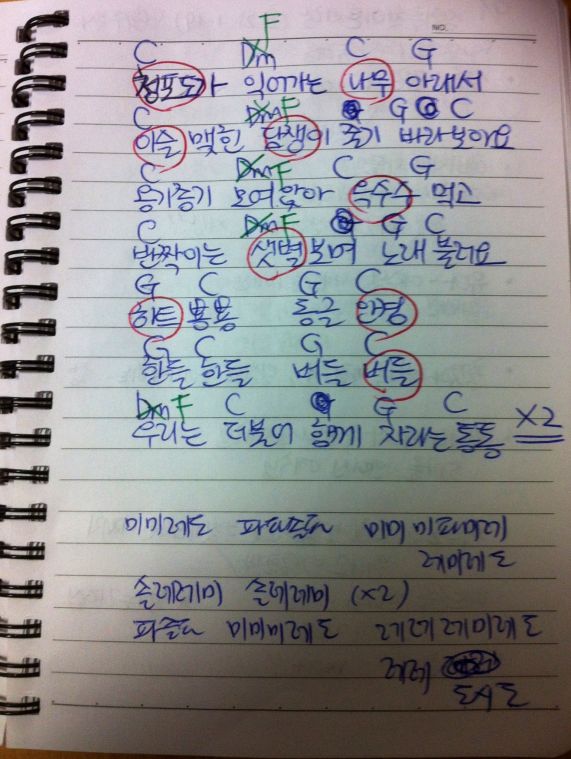 F
NO.
C Dm C G
청포도가 익어가는 나무 아래서
C Dm F G C
이슬 맺힌 담쟁이 줄기 바라보아요
C Dm F C G
옹기종기 모여앉아 옥수수 먹고
C Dm F G C
반짝이는 샛별보며 노래불러요
G C G C
하트 뿅뿅 동글 안경
G C G C
흔들 흔들 버들 버들
Dm F C G C
우리는 더불어 함께 자라는 통통 X2
미미레도 미미 미파미레
레미레도
솔레레미 솔레레미 (X2)
미미미레도 레레레미레도
레레
도시도